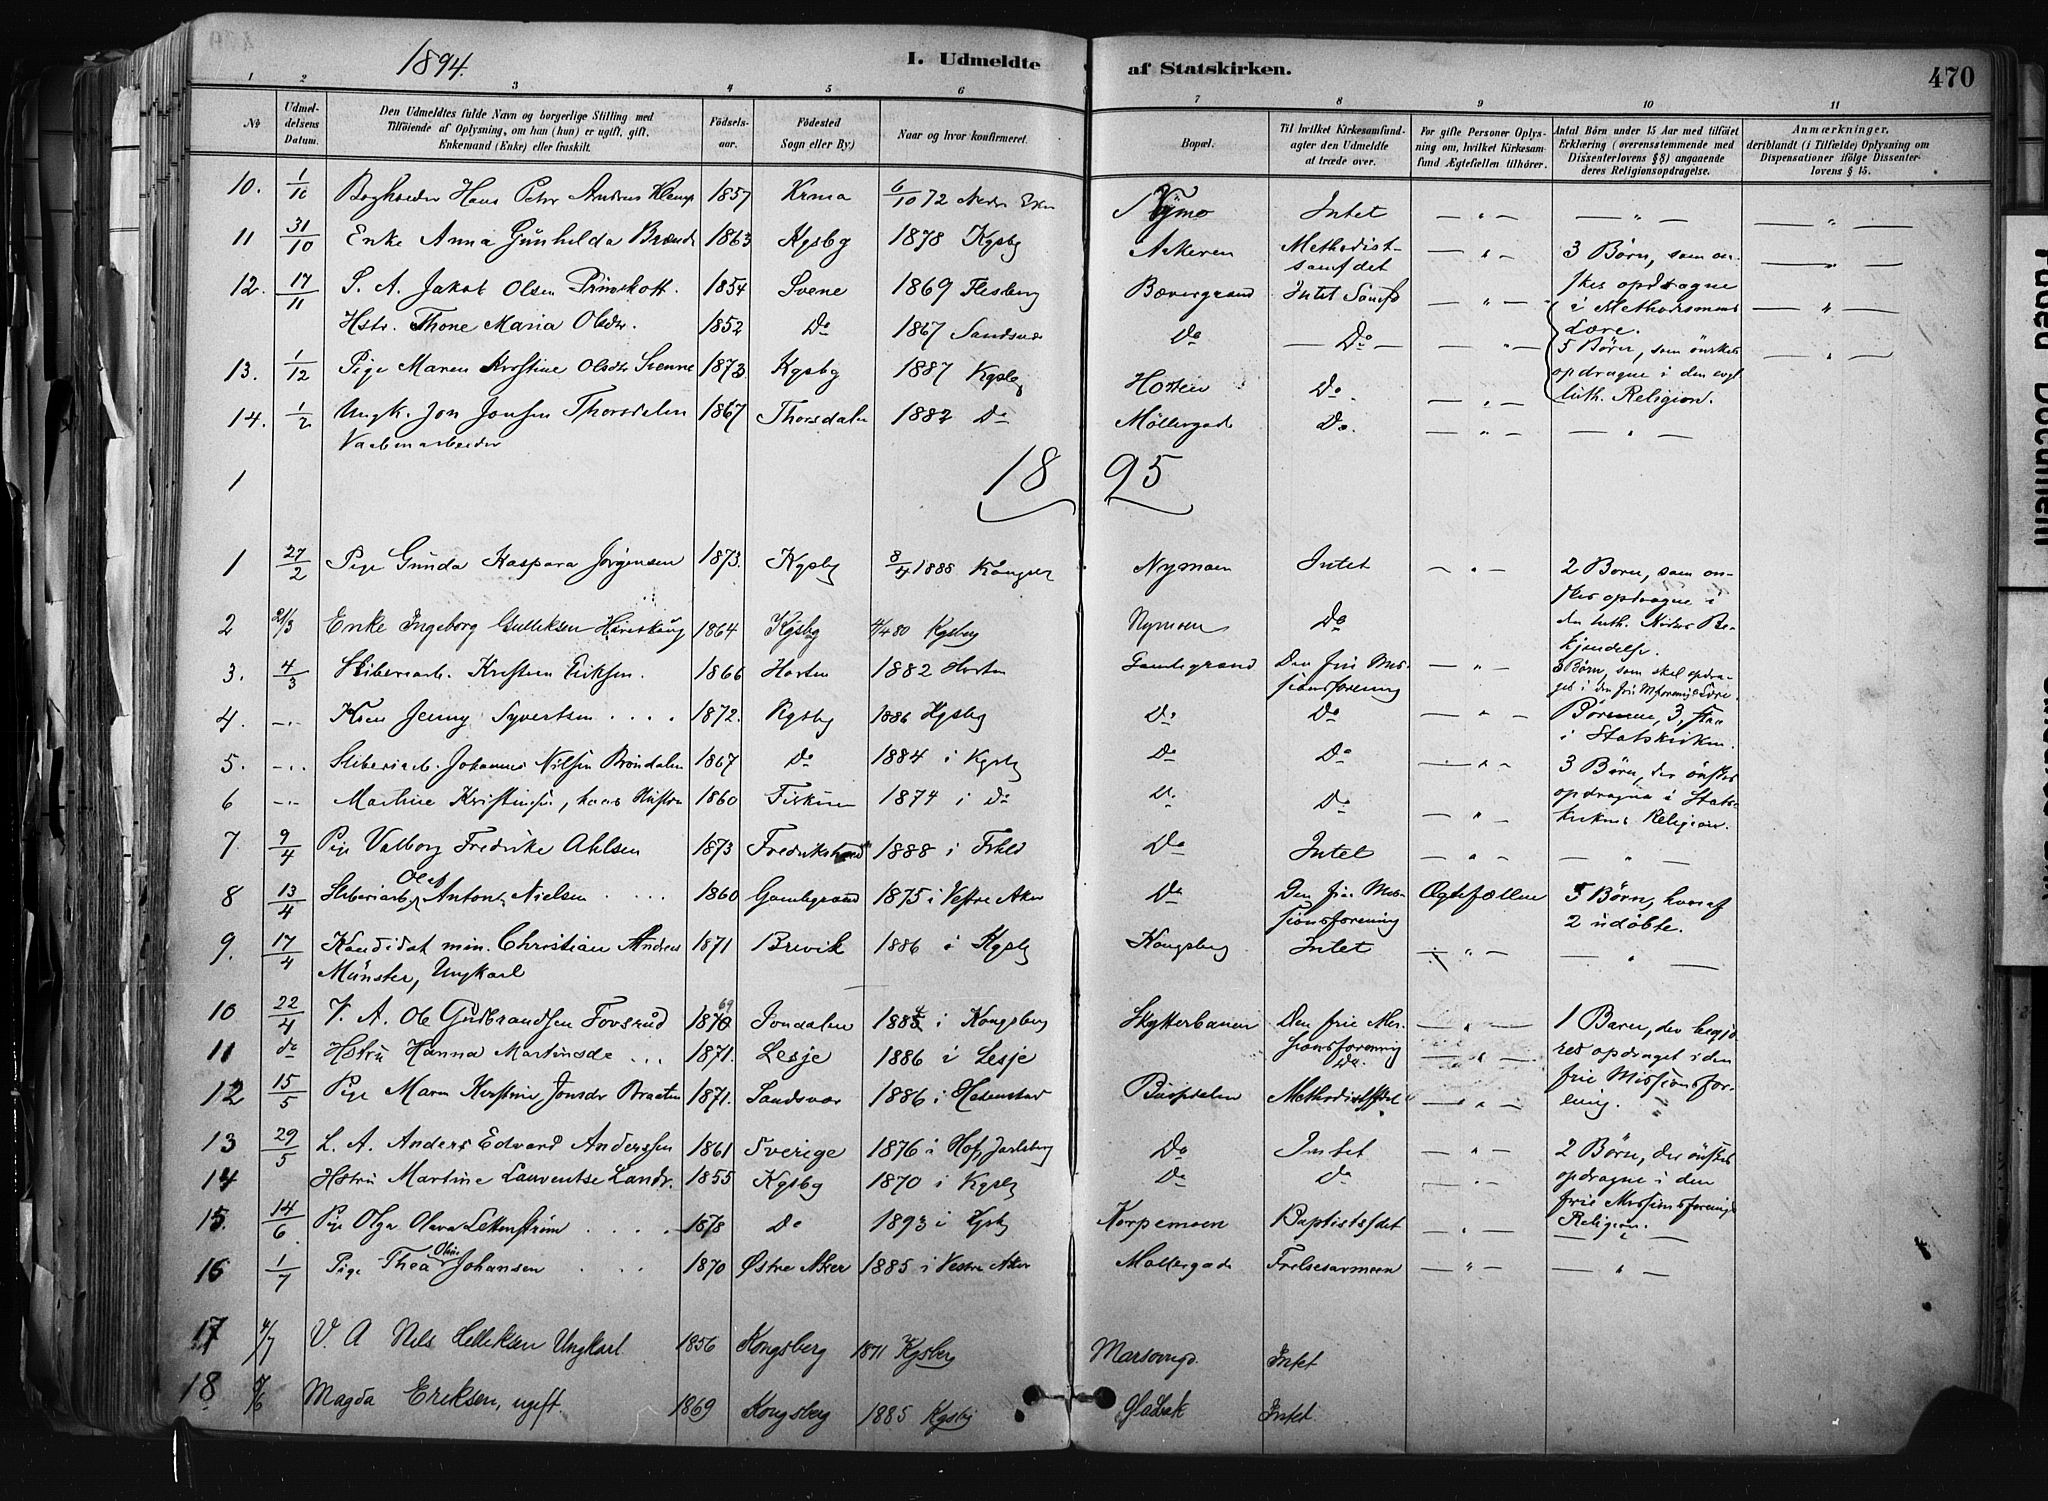 1894.
I. Udmeldte af Statskirken.
470
1 2 3 4 5 6 7 8 9 10 11
No
Udmeldelsens Datum.
Den Udmeldtes fulde Navn og borgerlige Stilling med
Tilföiende af Oplysning, om han (hun) er ugift, gift,
Enkemand (Enke) eller fraskilt.
Födselsaar.
Födested
Sogn eller By)
Naar og hvor konfirmeret.
Bopæl.
Til hvilket Kirkesamfund
agter den Udmeldte
at træde over.
For gifte Personer Oplysning
om, hvilket Kirkesamfund
Ægtefællen tilhörer.
Antal Börn under 15 Aar med tilföiet
Erklæring (overensstemmende med
Dissenterlovens § 8) angaaende
deres Religionsopdragelse.
Anmærkninger,
deriblandt (i Tilfælde) Oplysning om
Dispensationer ifölge Dissenterlovens
§ 15.
10. 1/10 Hans Peter Andreas 1857 Krnia 6/10 72 Intet — " — — " — — " —
11 31/10 Enke Anna Gunhilda 1863 Kgsbg 1878 Kgsbg Methodistsamfdet — " — 3 Börn, som önskes opdragne i Methodismens Lære. — " —
12. 17/11 S. A. Jakob Olsen 1854 Svene 1869 Flesberg Bævergrand Intet Samfd — " — — " —
Hstr. Thone Maria Olsdr. 1852 Do 1867 Sandsvær Do — Do — — " — 5 Börn, som önskes opdragne i den evgl luth. Religion. — " —
13. 1/12 Pige Maren Kristine Olsdr 1873 Kgsbg 1887 Kgsbg Do. — " —
14. 1/2 Ungk. Jon Jonsen Thorsdalen 1867 Thorsdalen 1882 Do Möllergade Do. — " — — " —
Vaabenarbeider
1
1895
1 27/2 Pige Gunda Kaspara Jörgensen 1873. Kgsbg 8/4 1888 Nymoen Intet — " — 2 Börn, som önskes opdragne i den luth. Kirkes Bekjendelse.
2 21/3 Enke Ingeborg Gulliksen 1864 Kgsbg 4/4 80 Kgsberg Nymoen Do
3. 4/3 Sliberiarb. Kristian Eriksen. 1866 Horten 1882 Horten Gamlegrand Den frie Missionsforening — " — 3 Börn, som skal opdrages i den frie M.forenings Lære.
4. - - Jenny Syvertsen .... 1872. Kgsbg 1886 Kgsbg Do Do — " — Börnene, 3, staa i Statskirken.
5. - - Sliberiarb. Johannes Nilsen Bröndalen 1867 Do 1884 i Kgsbg Do Do — " — 3 Börn, der önskes opdragne i Statskirkens Religion.
6 - - Martine Kristiansen, hans Hustru 1860 Fiskum 1874 i Do Do Do — " —
7. 9/4 Pige Valborg Fredrike Ahlsen 1873 Fredrikstad 1888 i Frhld Do Intet — " — — " —
8 13/4 Sliberiarb. Olaf Anton Nielsen .... 1860 Gamlegrand 1875 i Vestre Aker Do Den frie Missionsforening Ægtefællen 5 Börn, hvoraf 2 udöbte.
9. 17/4 Kandidat min. Christian Andreas 1871 Brevik 1886 i Kgsbg Kongsberg Intet — " — — " —
Münster, Ungkarl
10 22/4 V. A. Ole Gudbrandsen Fossrud 1870 69 Jondalen 1884 i Kongsberg Skytterbanen Den frie Missionsforening — " — 1 Barn, der begjæres opdraget i den frie Missionsforening.
11 do Hstru Hanna Martinsdr ... 1871. Lesje 1886 i Lesje Do. — " —
12 15/5 Pige Maren Kristine Jonsdr Braaten 1871. Sandsvær 1886 i Hedenstad Methodistsfdet — " — "
13 29/5 L. A. Anders Edvard Anderssen 1861 Sverige 1876 i Hof, Jarlsberg Do Intet — " — 2 Börn, der önskes opdragne i den frie Missionsforenings Religion.
14 Hstru Martine Lauventse Landr. 1855 Kgsbg 1870 i Kgsbg Do Do — " —
15. 14/6 Pige Olga Olava Lekenström .... 1878 Do 1893 i Kgsbg Korpemoen Baptistsfdet — " — — " —
16 1/7 Pige Thea Oline Johansen ... 1870 Østre Aker 1885 i Vestre Aker Möllergade Frelsesarmeen — " — — " —
17 4/7 V. A Nils Helliksen Ungkarl 1856 Kongsberg 1871 Kgsberg Intet
18 Magda Eriksen, ugift. 1869 Kongsberg 1885 Kgsbg Intet.